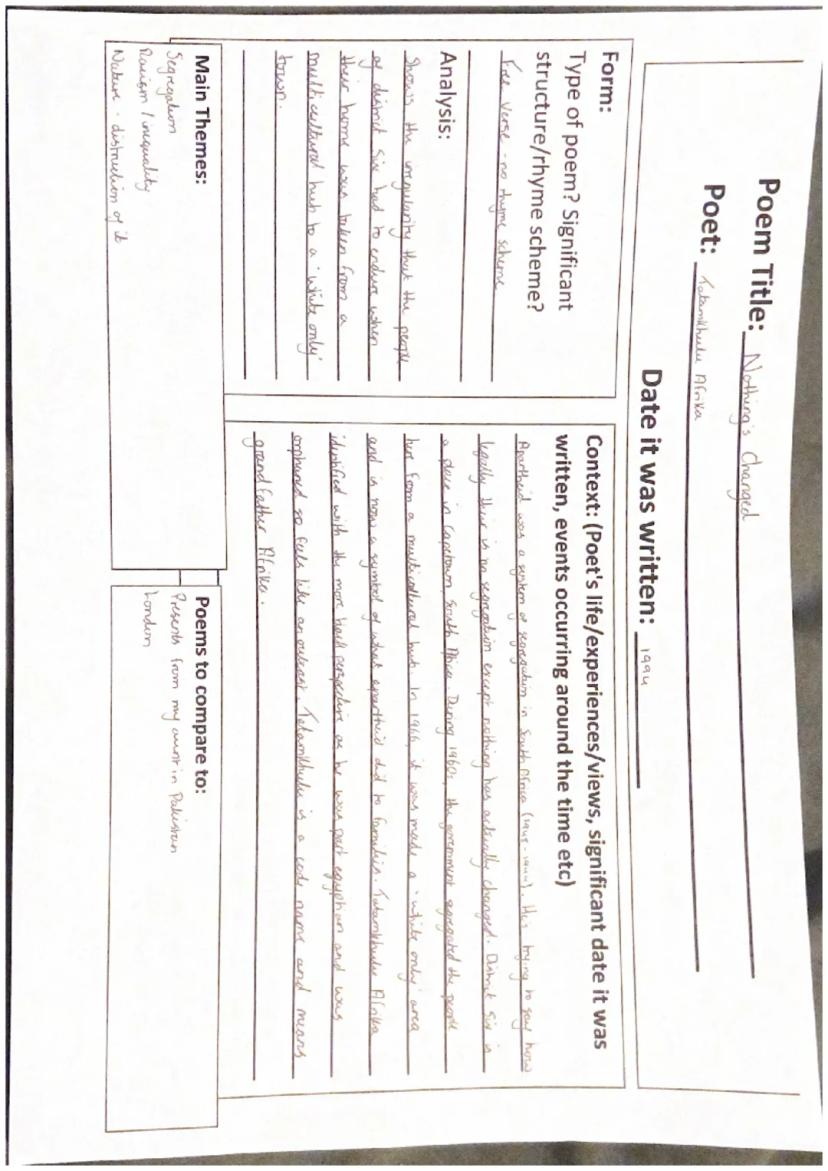 Poem Title: Nothing's Changed
Poet: Tatamkhulu Afrika
Date it was written: 1994
Form:
Type of poem? Significant
structure/rhyme scheme?
Free verse - no rhyme scheme
Analysis:
Shows the irregularity that the people
of distrit six had to endure when
their home was taken from a
multicultural hub to a 'white only'
town.
Context: (Poet's life/experiences/views, significant date it was
written, events occurring around the time etc)
Apartheid was a system of segregation in South Africa (1948-1994). He's trying to say how
legally there is no segregation except nothing has actually changed. District Six is
a place in Capetown, South Africa. During 1960s, the government segregated the people
but from a multicultural hub. In 1966, it was made a 'white only' area
and is now a symbol of what apartheid did to families. Tatamkhulu Afrika
identified with the more black perspective as he was part egyptian and was
orphaned so feels like an outcast. Tatamkhulu is a code name and means
grandfather Afrika.
Main Themes:
Segregation
Racism / inequality
Nature - distruction of it
Poems to compare to:
Presents from my aunt in Pakistan
London